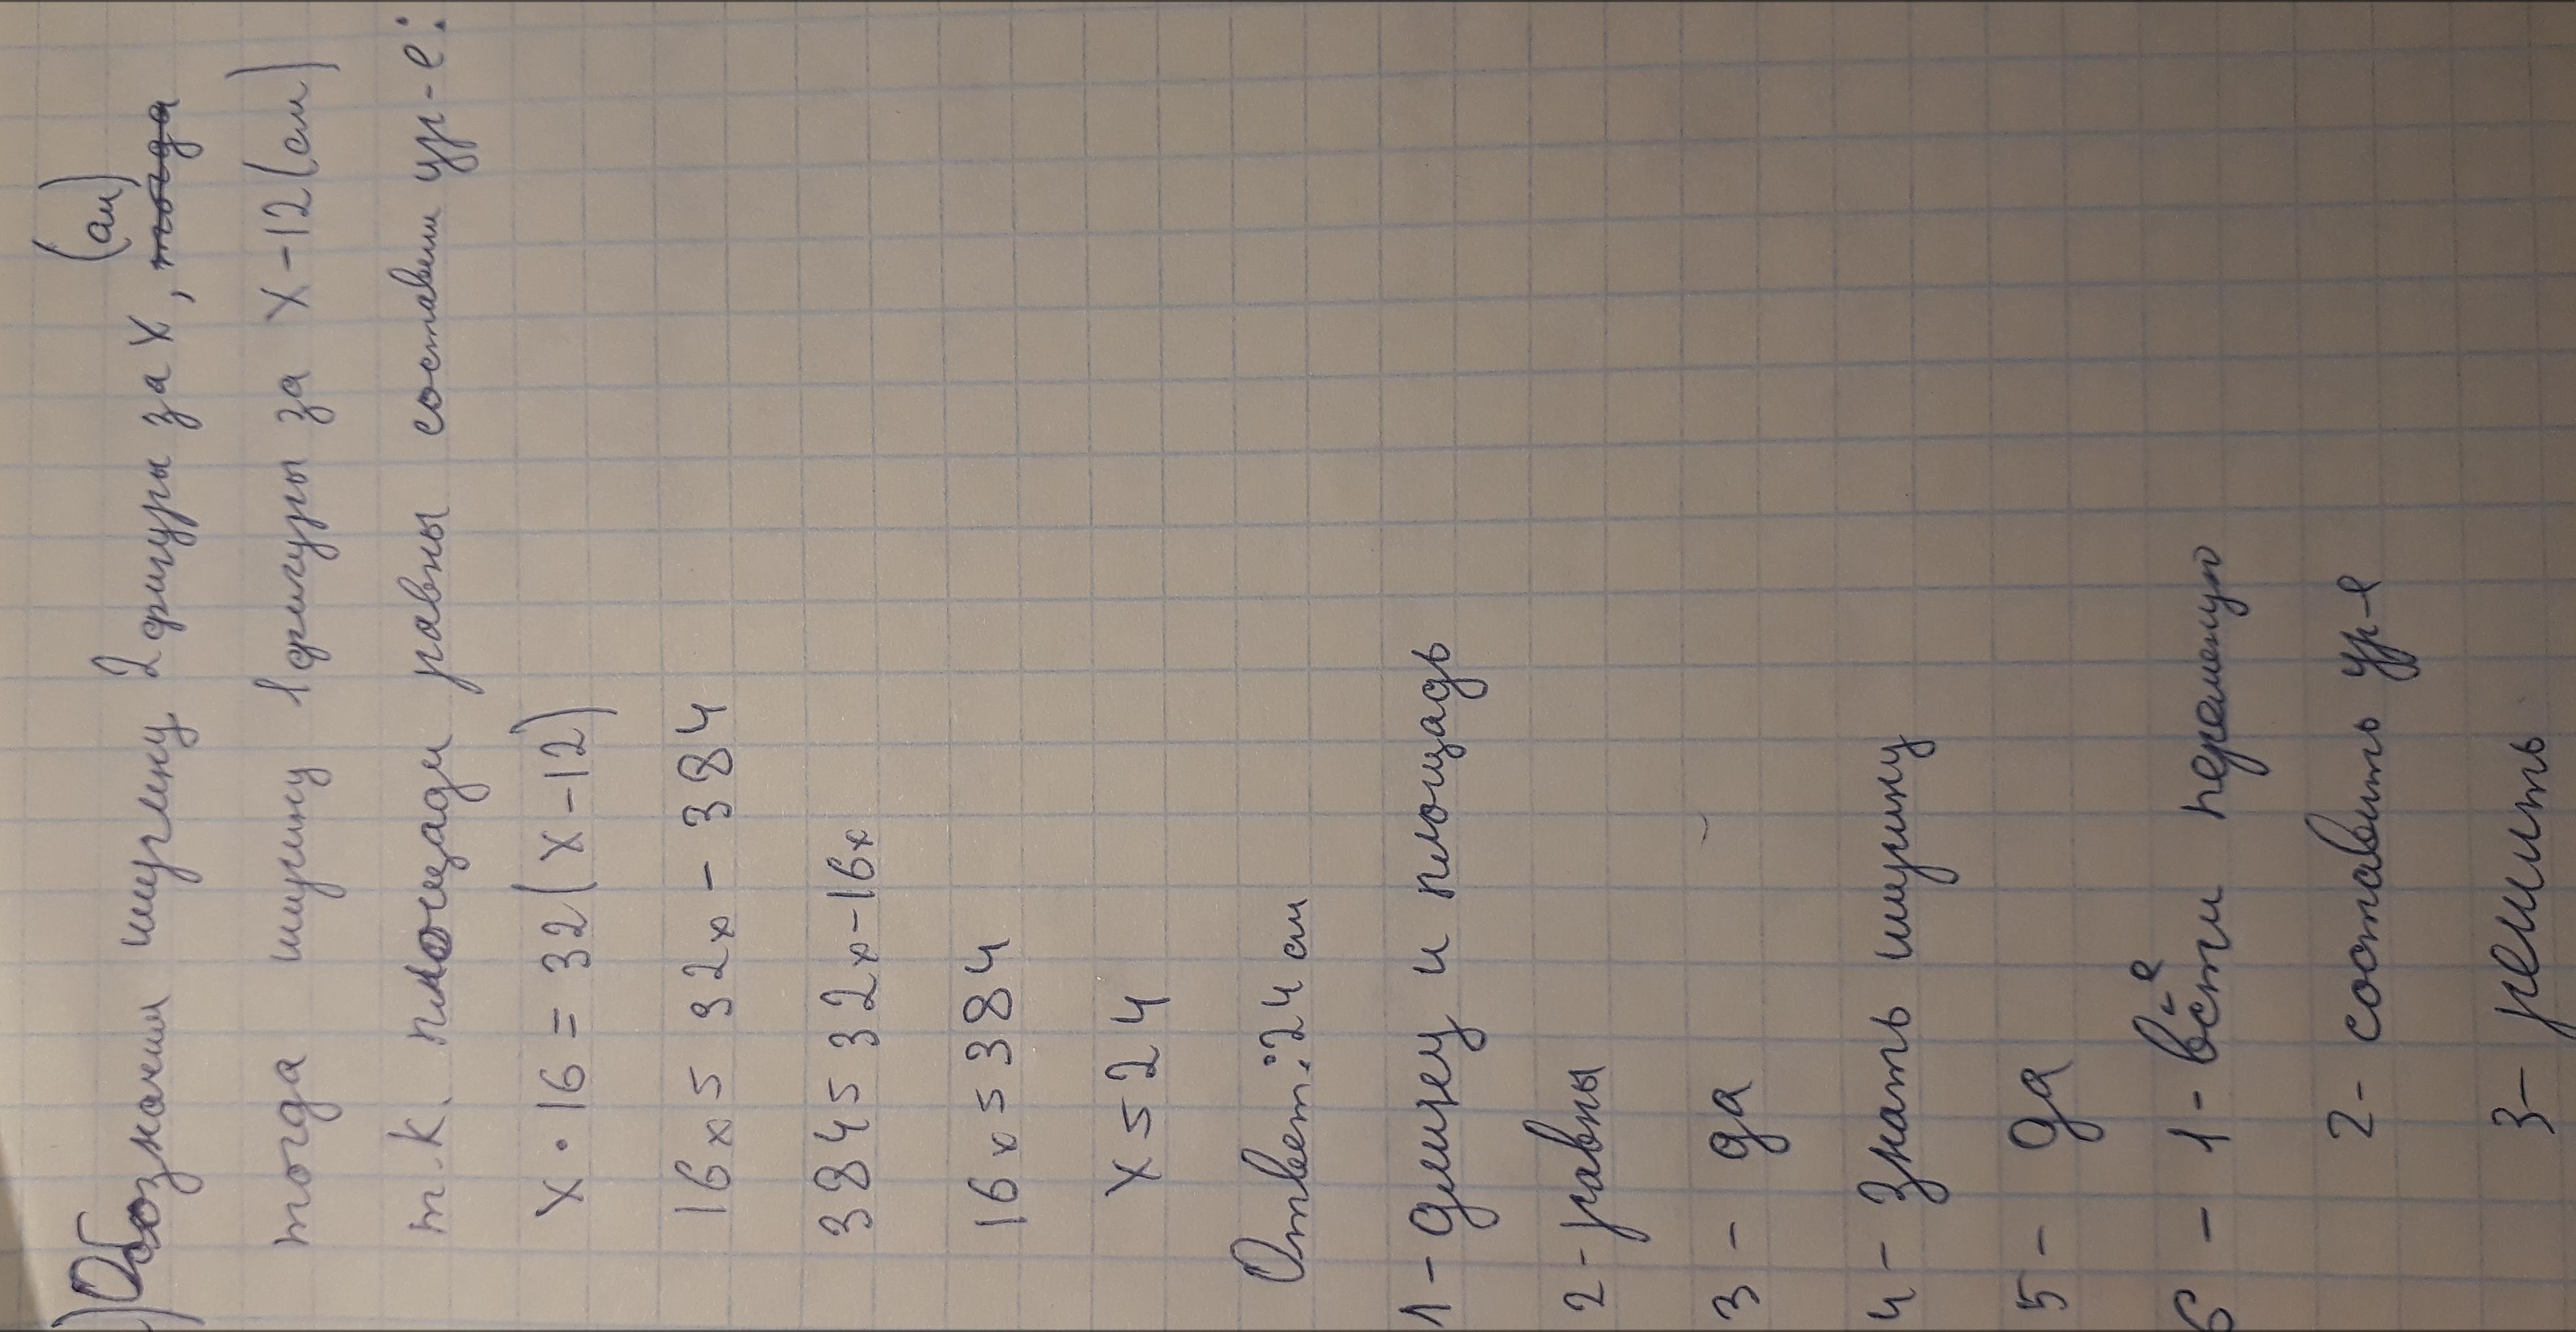 ) Обозначим ширину 2 фигуры за х, (см) тогда
тогда ширину 1 фигуры за х-12(см)
т.к. площади равны составим ур-е:
х·16=32(х-12)
16х=32х-384
384=32х-16х
16х=384
х=24
Ответ:24см
1-длинец и площадь
2-равны
3- да
4- Знать ширину
5- да
6 - 1-ввести переменую
2- составить ур-е
3- решить